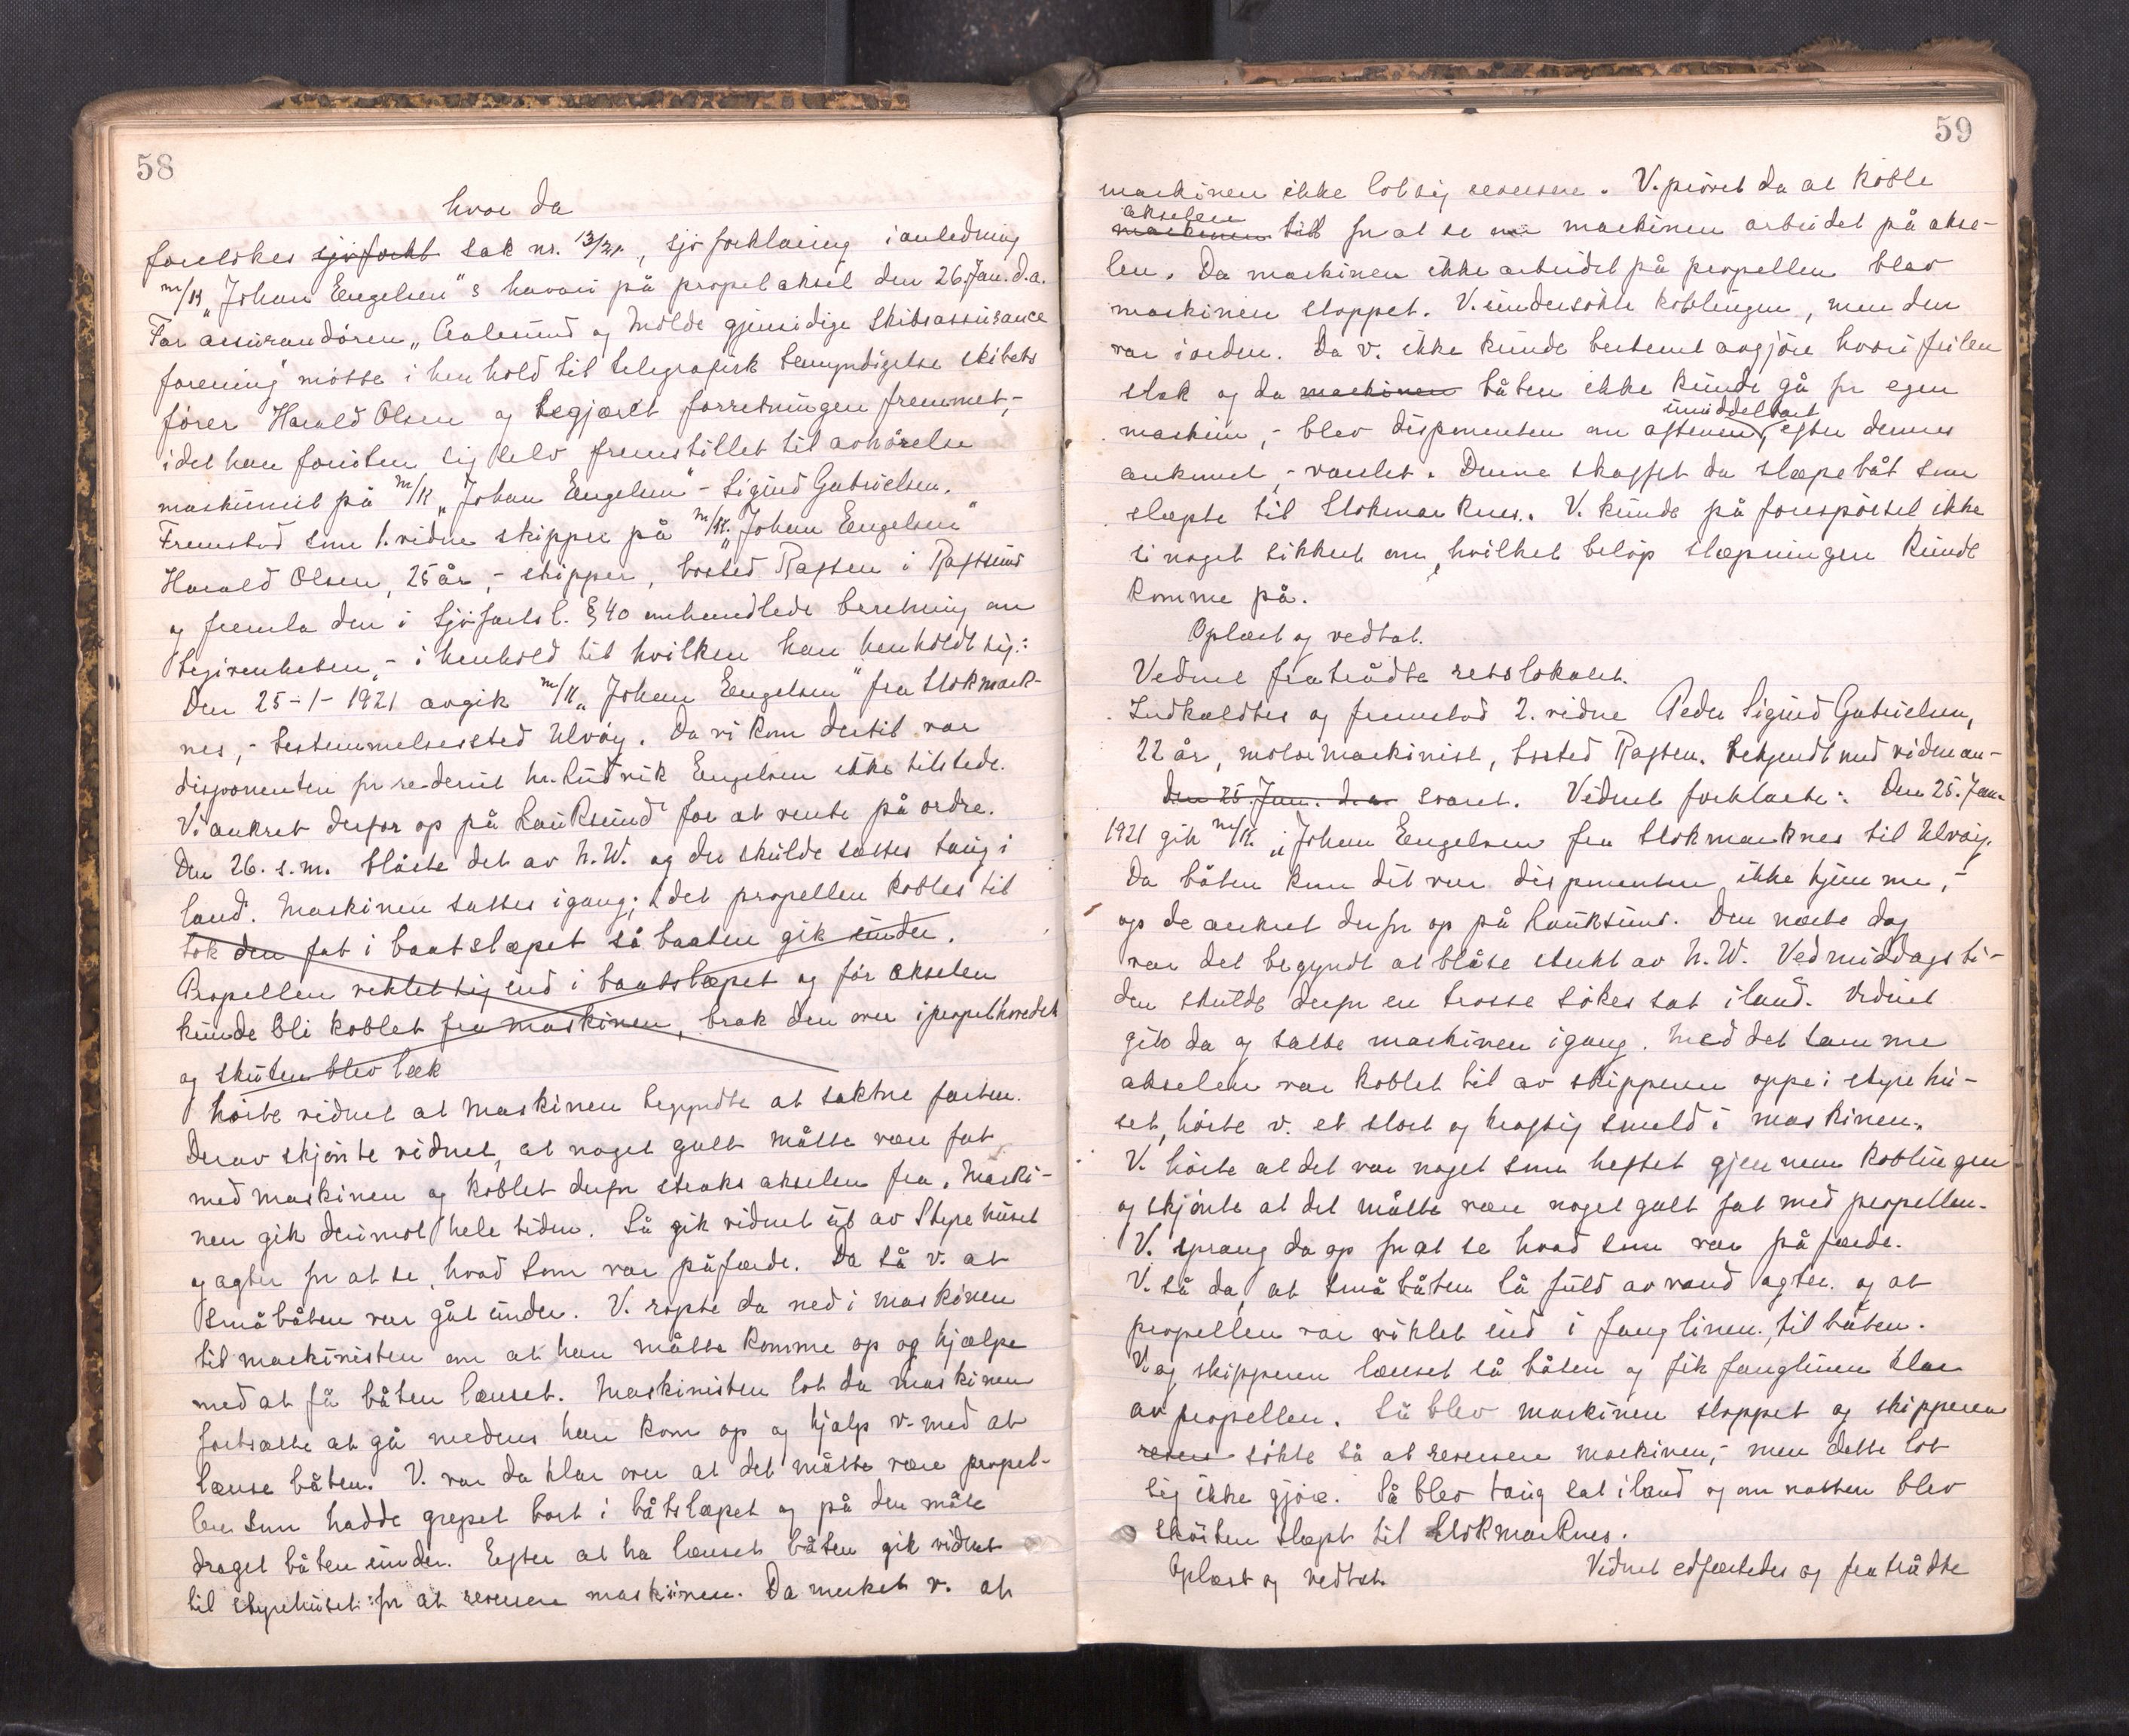 58
hvor da
forelökes sjöforkl sak nr. 13/21, sjöforklaring i anledning
m/K „Johan Engelsen"s havari på propelaksel den 26. Jan. d.a.
For assurandören „Aalesund og Molde gjensidige Skibsassurance
forening" mötte i henhold til telegrafisk bemyndigelse skibets
förer Harald Olsen og begjæret forretningen fremmet,-
idet han foruten sig selv fremstillet til avhörelse
maskinist på m/K „Johan Engelsen" - Sigurd Gabrielsen.
Fremstod som 1. vidne skipper på m/K. „Johan Engelsen"
Harald Olsen, 25 år, - skipper, bosted Raften i Raftsund
og fremla den i Sjöfartsl. § 40 omhandlede beretning om
begivenheten, - i henhold til hvilken han henholdt sig:
Den 25-1-1921 avgik m/K „Johan Engelsen" fra Stokmark-
nes, - bestemmelsessted Ulvöy. Da vi kom dertil var
disponenten for rederiet hr. Ludvik Engelsen ikke tilstede.
Vi ankret derfor op på Hauksund for at vente på ordre.
Den 26. s.m. blåste det av N.W. og der skulde sættes taug i
land. Maskinen sattes igang; idet propellen kobles til
tok den fat i baatslæpet så baaten gik under.
Propellen viklet sig ind i baatslæpet og för akselen
kunde bli koblet fra maskinen, brak den over i propelhovedet
og skuten blev læk
hörte vidnet at maskinen begyndte at saktne farten.
Derav skjönte vidnet, at noget galt måtte være fat
med maskinen og koblet derfor straks akselen fra. Maski-
nen gik derimot hele tiden. Så gik vidnet ut av Styrehuset
og agter for at se, hvad som var påfærde. Da så v. at
småbåten var gåt under. V. ropte da ned i maskinen
til maskinisten om at han måtte komme op og hjælpe
med at få båten lænset. Maskinisten lot da maskinen
fortsætte at gå medens han kom op og hjalp v. med at
lænse båten. V. var da klar over at det måtte være propel-
len som hadde grepet bort i båtslæpet og på den måte
draget båten under. Efter at ha lænset båten gik vidnet
til styrehuset for at reversere maskinen. Da merket v. at
59
maskinen ikke lot sig reversere. V. prövet da at koble
akselen
maskinen till for at se om maskinen arbeidet på akse-
len. Da maskinen ikke arbeidet på propellen blev
maskinen stoppet. V. undersökte koblingen, men den
var i orden. Da v. ikke kunde bestemt avgjöre hvori feilen
stak og da maskinen båten ikke kunde gå for egen
umiddelbart
maskin, - blev disponenten om aftenen, efter dennes
ankomst, - varslet. Denne skaffet da slæpebåt som
slæpte til Stokmarknes. V. kunde på forespörsel ikke
si noget sikkert om, hvilket belöp slæpningen kunde
komme på.
Oplæst og vedtat.
Vidnet fratrådte retslokalet.
Indkaldtes og fremstod 2. vidne Peder Sigurd Gabrielsen,
22 år, motormaskinist, bosted Raften. Bekjendt med vidnean-
den 25. Jan. d.a. svaret. Vidnet forklarte: Den 25. Jan.
1921 gik m/K. „Johan Engelsen fra Stokmarknes til Ulvöy.
Da båten kom dit var disponenten ikke hjemme, -
og de ankret derfor op på Hauksund. Den næste dag
var det begyndt at blåse sterkt av N.W. Ved middagsti-
den skulde derfor en trosse sökes sat iland. Vidnet
gik da og satte maskinen igang. Med det samme
akselen var koblet til av skipperen oppe i styrehu-
set, hörte v. et stort og kraftig smeld i maskinen.
V. hörte at det var noget som heftet gjennem koblingen
og skjönte at det måtte være noget galt fat med propellen.
V. sprang da op for at se hvad som var på færde.
V. så da, at småbåten lå fuld av vand agter. og at
propellen var viklet ind i fanglinen, til båten.
V. og skipperen lænset så båten og fik fanglinen klar
av propellen. Så blev maskinen stoppet og skipperen
revers sökte så at reversere maskinen, - men dette lot
sig ikke gjöre. Så blev taug sat iland og om natten blev
sköiten slæpt til Stokmarknes.
Oplæst og vedtat. Vidnet edfæstedes og fratrådte